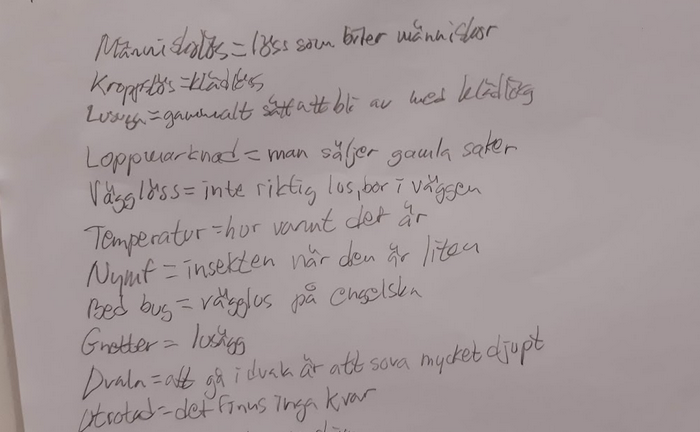 Människolös = löss som biter människor
Kropplös = klädlös
= gammalt sätt att bli av med klädlög
Loppmarknad = man säljer gamla saker
Vägglöss = inte riktig lus, bor i väggen
Temperatur = hur varmt det är
Nymf = insekten när den är liten
Bed bug = vägglus på engelska
Gnetter = lusägg
Dvala = att gå i dvala är att sova mycket djupt
Utrotad = det finns inga kvar